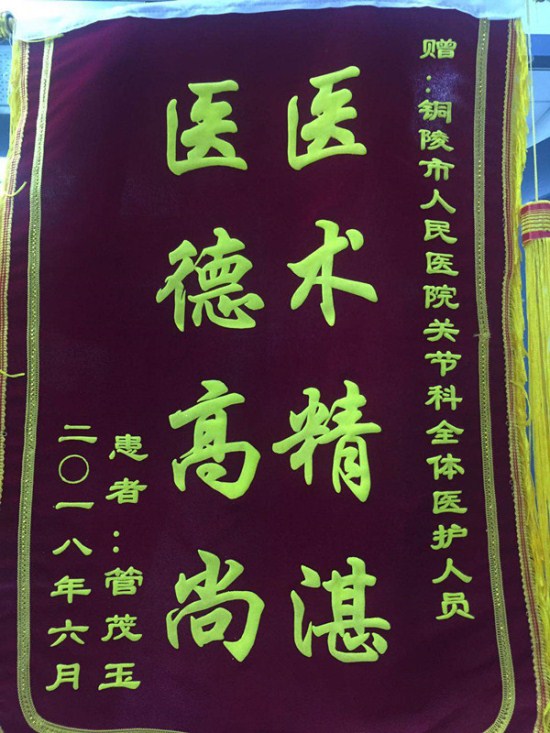 赠：铜陵市人民医院关节科全体医护人员
医术精湛
医德高尚
患者：管茂玉
二〇一八年六月